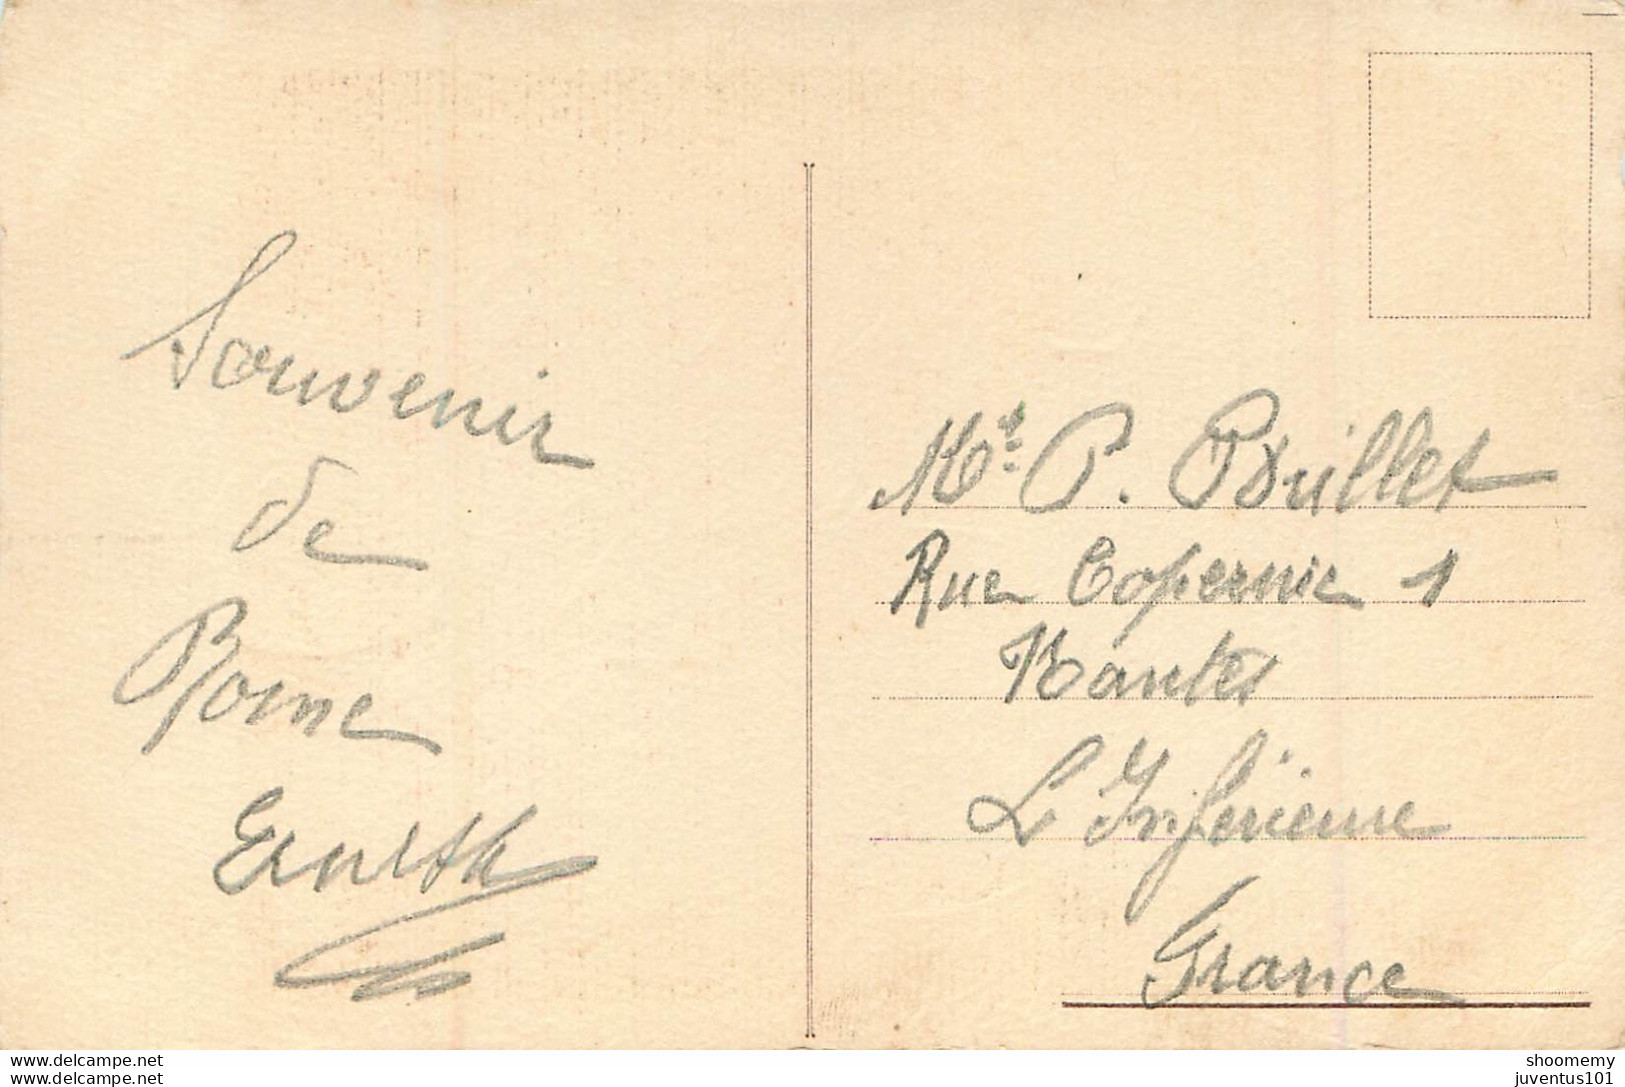 Souvenir
de
Rome
Mr. P. Pouillet
Rue Copernic 1
Nantes
L. Inférieure
France
www.delcampe.net
shoomemy
juventus101